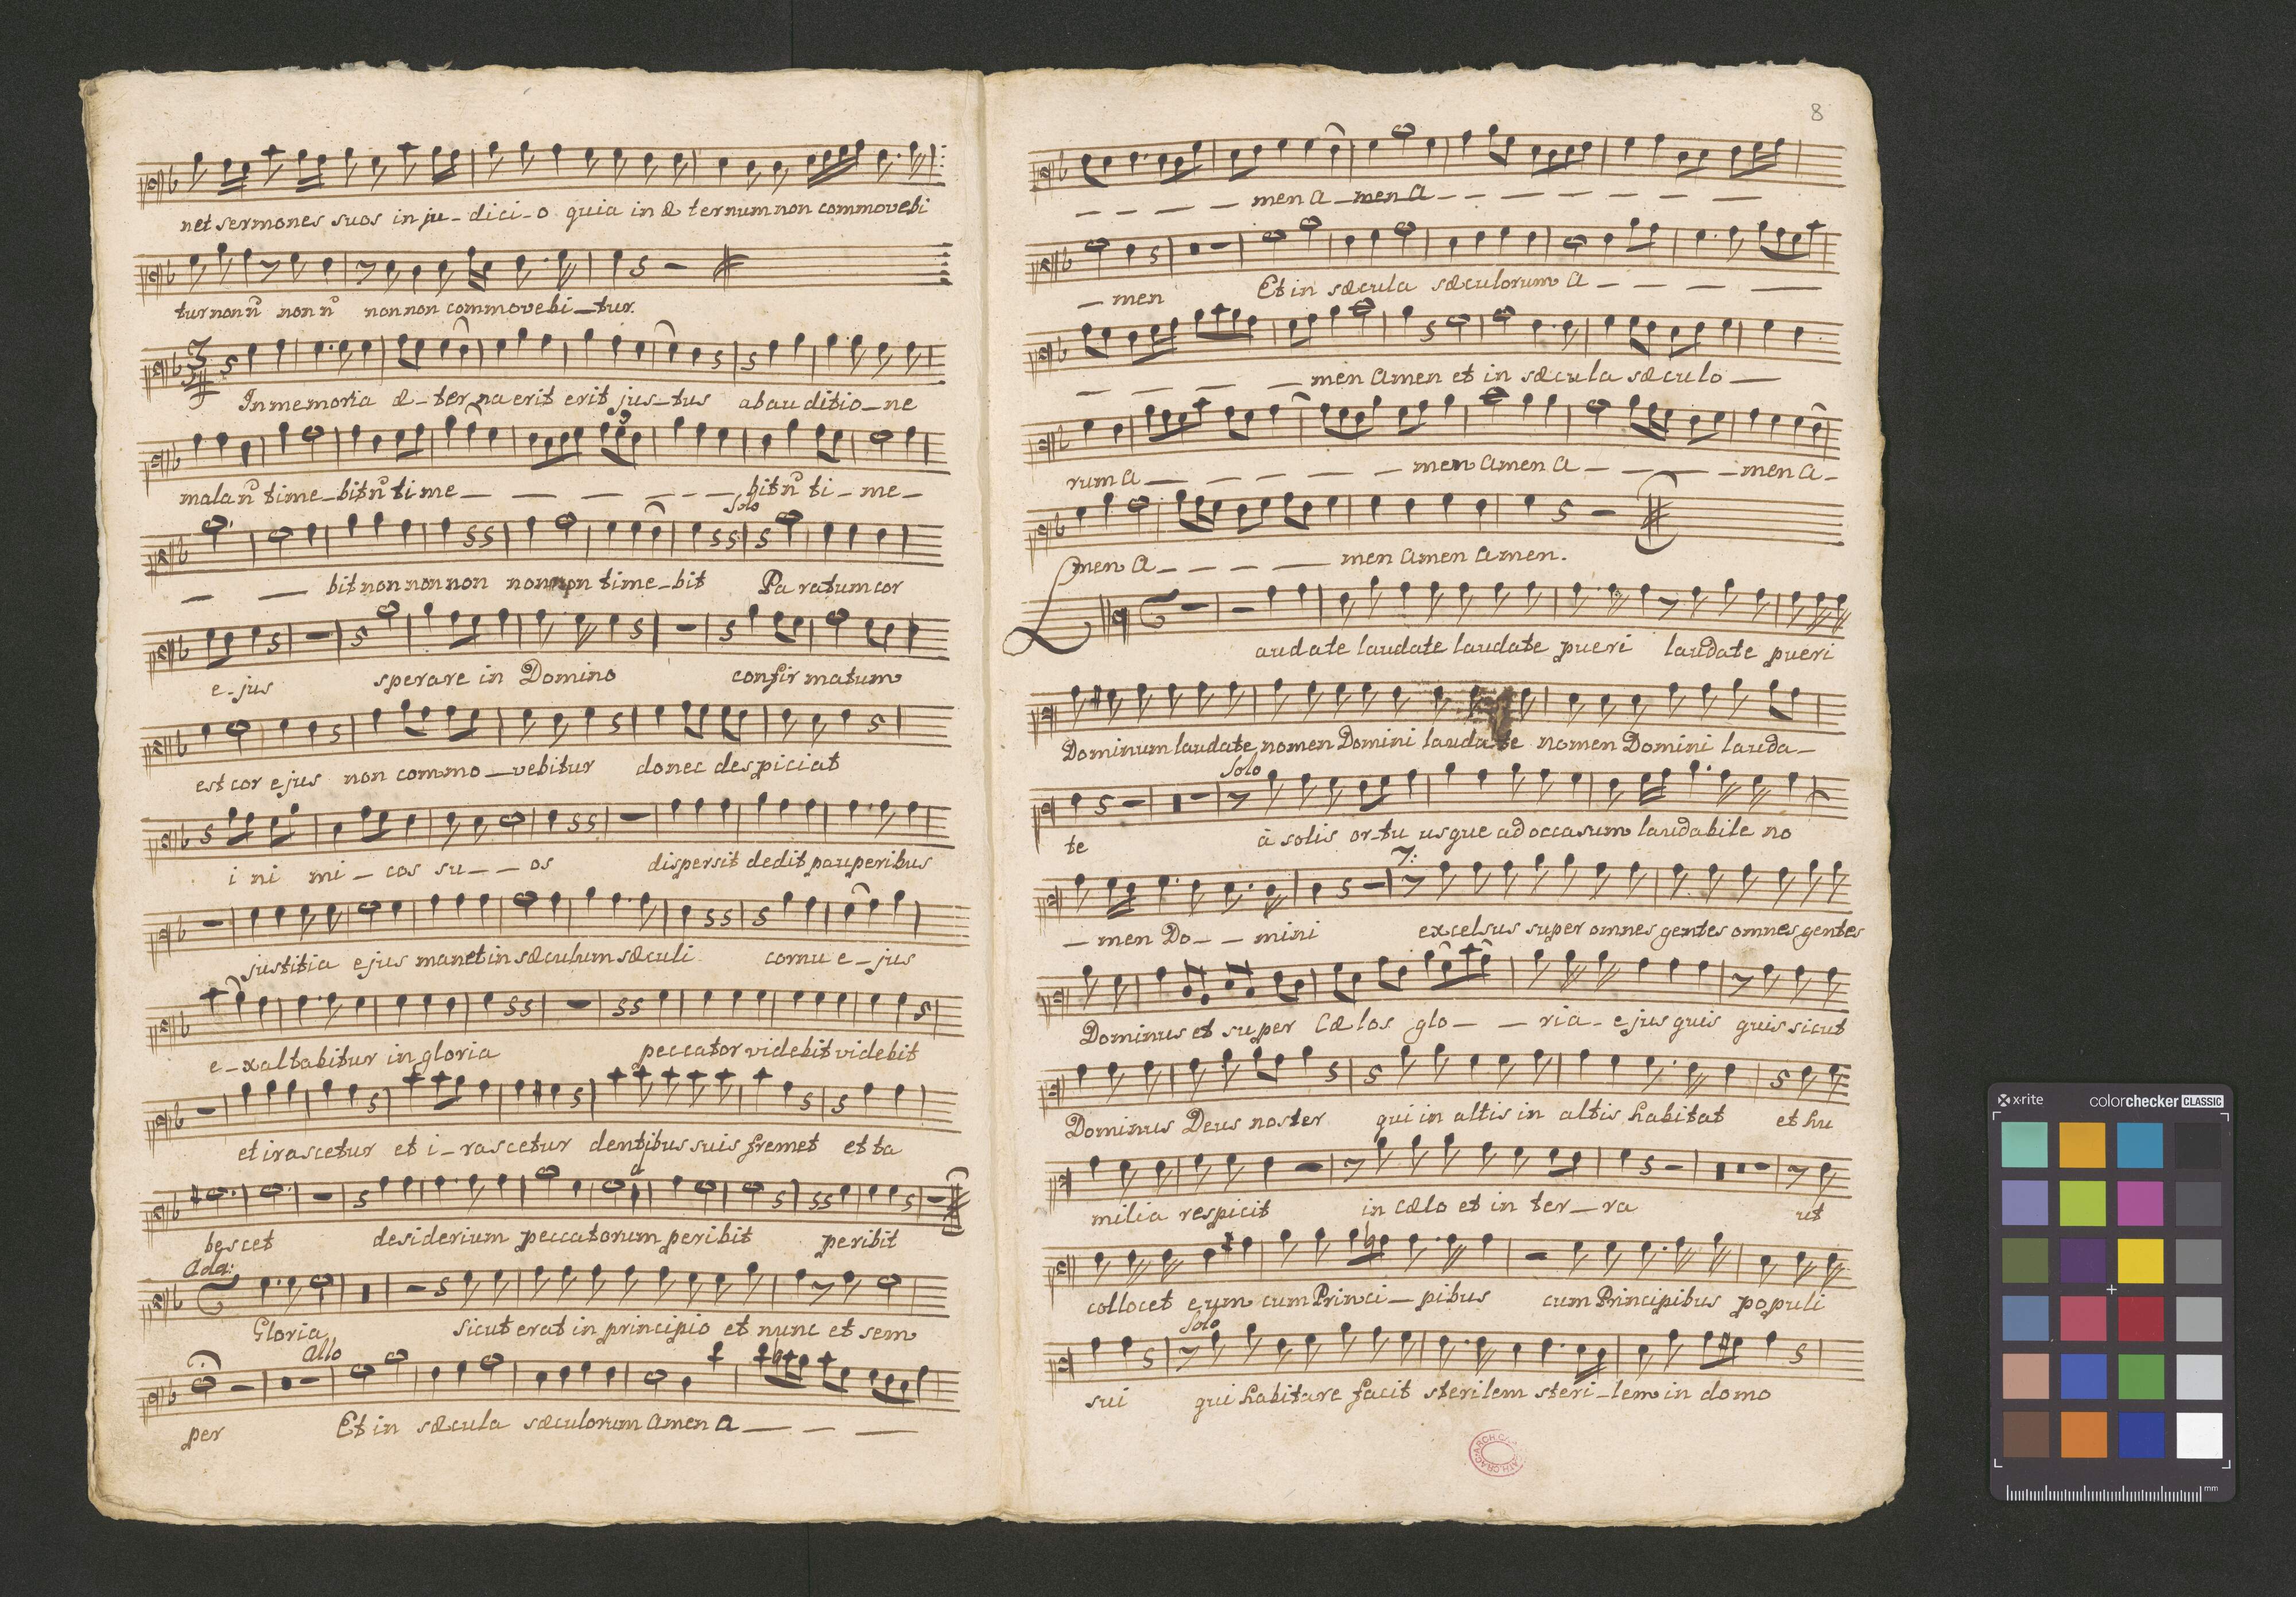 net sermones suos in ju_dici_o quia in æ ternum non commovebi
tur non n̄ non n̄ non non commovebi_tur.
In memoria æ_ter_na erit erit jus_tus ab au ditio_ne
mala n̄ time_bit n̄ ti me_ _ _ _ _ _ bit n̄ ti_me_
Solo
_ _ bit non non non non non time_bit Pa ratum cor
e_jus sperare in Domino confir matum
est cor ejus non commo_vebitur donec despiciat
i ni mi_cos su_ _ _os dispersit dedit pauperibus
justitia ejus manet in sæculum sæculi cornu e_jus
e_xaltabitur in gloria peccator videbit videbit
et irascetur et i_rascetur dentibus suis fremet et ta
bescet desiderium peccatorum peribit peribit
Ada:
Gloria sicut erat in principio et nunc et sem
Allo
per Et in sæcula sæculorum Amen A_ _ _
8
_ _ _ _ men A_men A_ _ _ _ _ _ _
_men Et in sæcula sæculorum A_ _ _ _
_ _ _ _ men Amen et in sæcula sæculo_
rum A_ _ _ _ _ _ men Amen A_ _ _ _men A_
men A_ _ _ _ _ men Amen Amen.
Laudate laudate laudate pueri laudate pueri
Dominum laudate nomen Domini laudate nomen Domini lauda_
Solo
te à solis or_tu usque ad occasum laudabile no
7:
_men Do_ _mini excelsus super omnes gentes omnes gentes
Dominus et super Cælos glo_ _ria_ejus quis quis sicut
Dominus Deus noster qui in altis in altis habitat et hu
milia respicit in cælo et in ter_ra ut
collocet eum cum Princi_pibus cum Principibus populi
Solo
sui qui habitare facit sterilem steri_lem in domo
x-rite colorchecker CLASSIC
mm